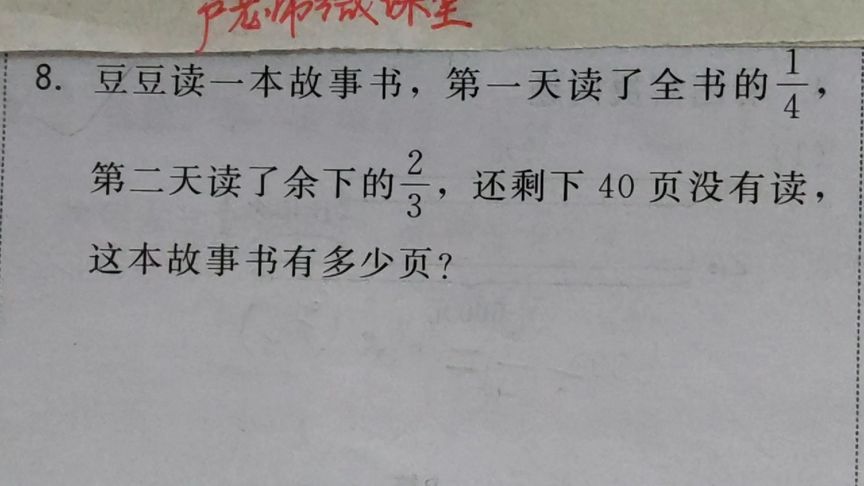 卢老师微课堂
8. 豆豆读一本故事书，第一天读了全书的1/4，
第二天读了余下的2/3，还剩下 40 页没有读，
这本故事书有多少页？